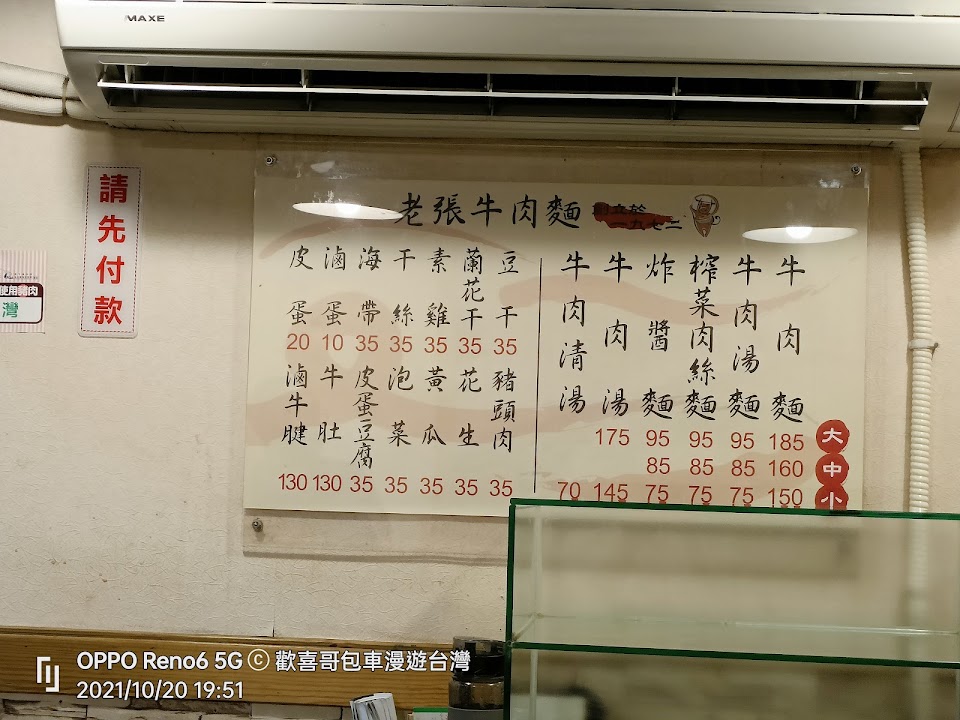 MAXE
請先付款
使用豬肉
灣
老張牛肉麵
創立於
一九七二
牛肉麵 185 160 150
牛肉湯麵 95 85 75
榨菜肉絲麵 95 85 75
炸醬麵 95 85 75
牛肉湯 175 145
牛肉清湯 70
大
中
小
豆干 35
蘭花干 35
素雞 35
干絲 35
海帶 35
滷蛋 10
皮蛋 20
豬頭肉 35
花生 35
黃瓜 35
泡菜 35
皮蛋豆腐 35
牛肚 130
滷牛腱 130
OPPO Reno6 5G © 歡喜哥包車漫遊台灣
2021/10/20 19:51